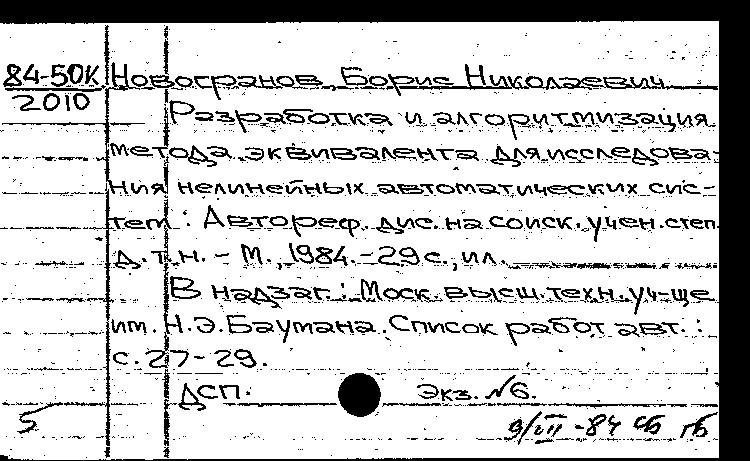 84-50К Новогранов, Борис Николаевич
2010
Разработка и алгоритмизация
метода эквивалента для исследова-
ния нелинейных автоматических сис-
тем : Автореф. дис. на соиск. учен. степ.
д.т.н. - М., 1984. - 29 с., ил.
В надзаг.: Моск. высш. техн. уч-ще
им. Н.Э. Баумана. Список работ авт. :
с. 27-29.
ДСП. Экз. №6.
5
9/VII -84